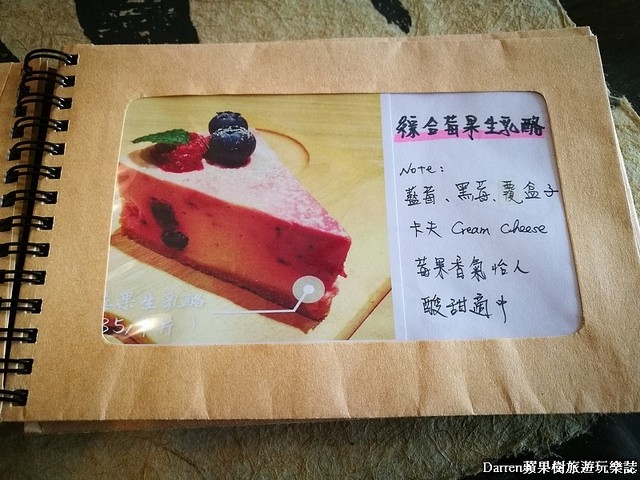 綜合莓果生乳酪
Note:
藍莓、黑莓、覆盒子
卡夫 Cream Cheese
莓果香氣怡人
酸甜適中
果生乳酪
Darren蘋果樹旅遊玩樂誌